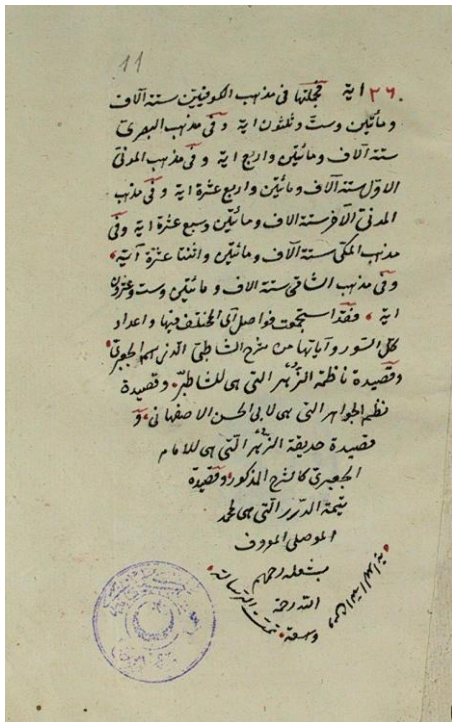 11
٢٦ اية فجملتها فى مذهب الكوفيين ستة آلاف
ومأتين وست وثلثون اية وفى مذهب البصرى
ستة آلاف ومائتين واربع اية وفى مذهب المدنى
الاول ستة آلاف ومائتين واربع عشرة اية وفى مذهب
المدنى الآخر ستة الاف ومائتين وسبع عشرة اية وفى
مذهب المكى ستة آلاف ومائتين واثنتا عشرة آية
وفى مذهب الشامى ستة الاف ومائتين وست وعشرون
اية فقد استجمعت فواصل آى المختلف فيها واعداد
كل السور وآياتها من شرح الشاطبى الجعبرى
وقصيدة ناظمة الزهر التى هى للشاطبى وقصيدة
نظيم الجواهر التى هى لابى الحسن الاصفهانى و
قصيدة حديقة الزهر التى هى للامام
الجعبرى كالشرح المذكور وقصيدة
يتيمة الدرر التى هى لمحمد
الموصلى المعروف
بشعله رحمهم
الله رحمة
وسعة تمت الرسالة